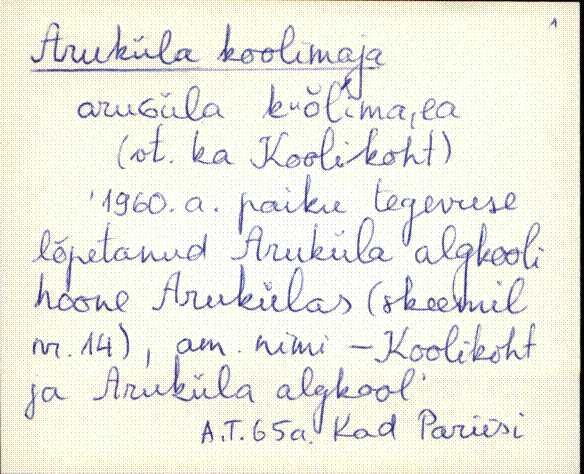 1
Aruküla koolimaja
aruGüla kuoĺima,ea
(vt. ka Koolikoht)
'1960. a. paiku tegevuse
lõpetanud Aruküla algkooli
hoone Arukülas (skeemil
nr. 14), am. nimi – Koolikoht
ja Aruküla algkool'
A.T. 65a. Kad Pariisi